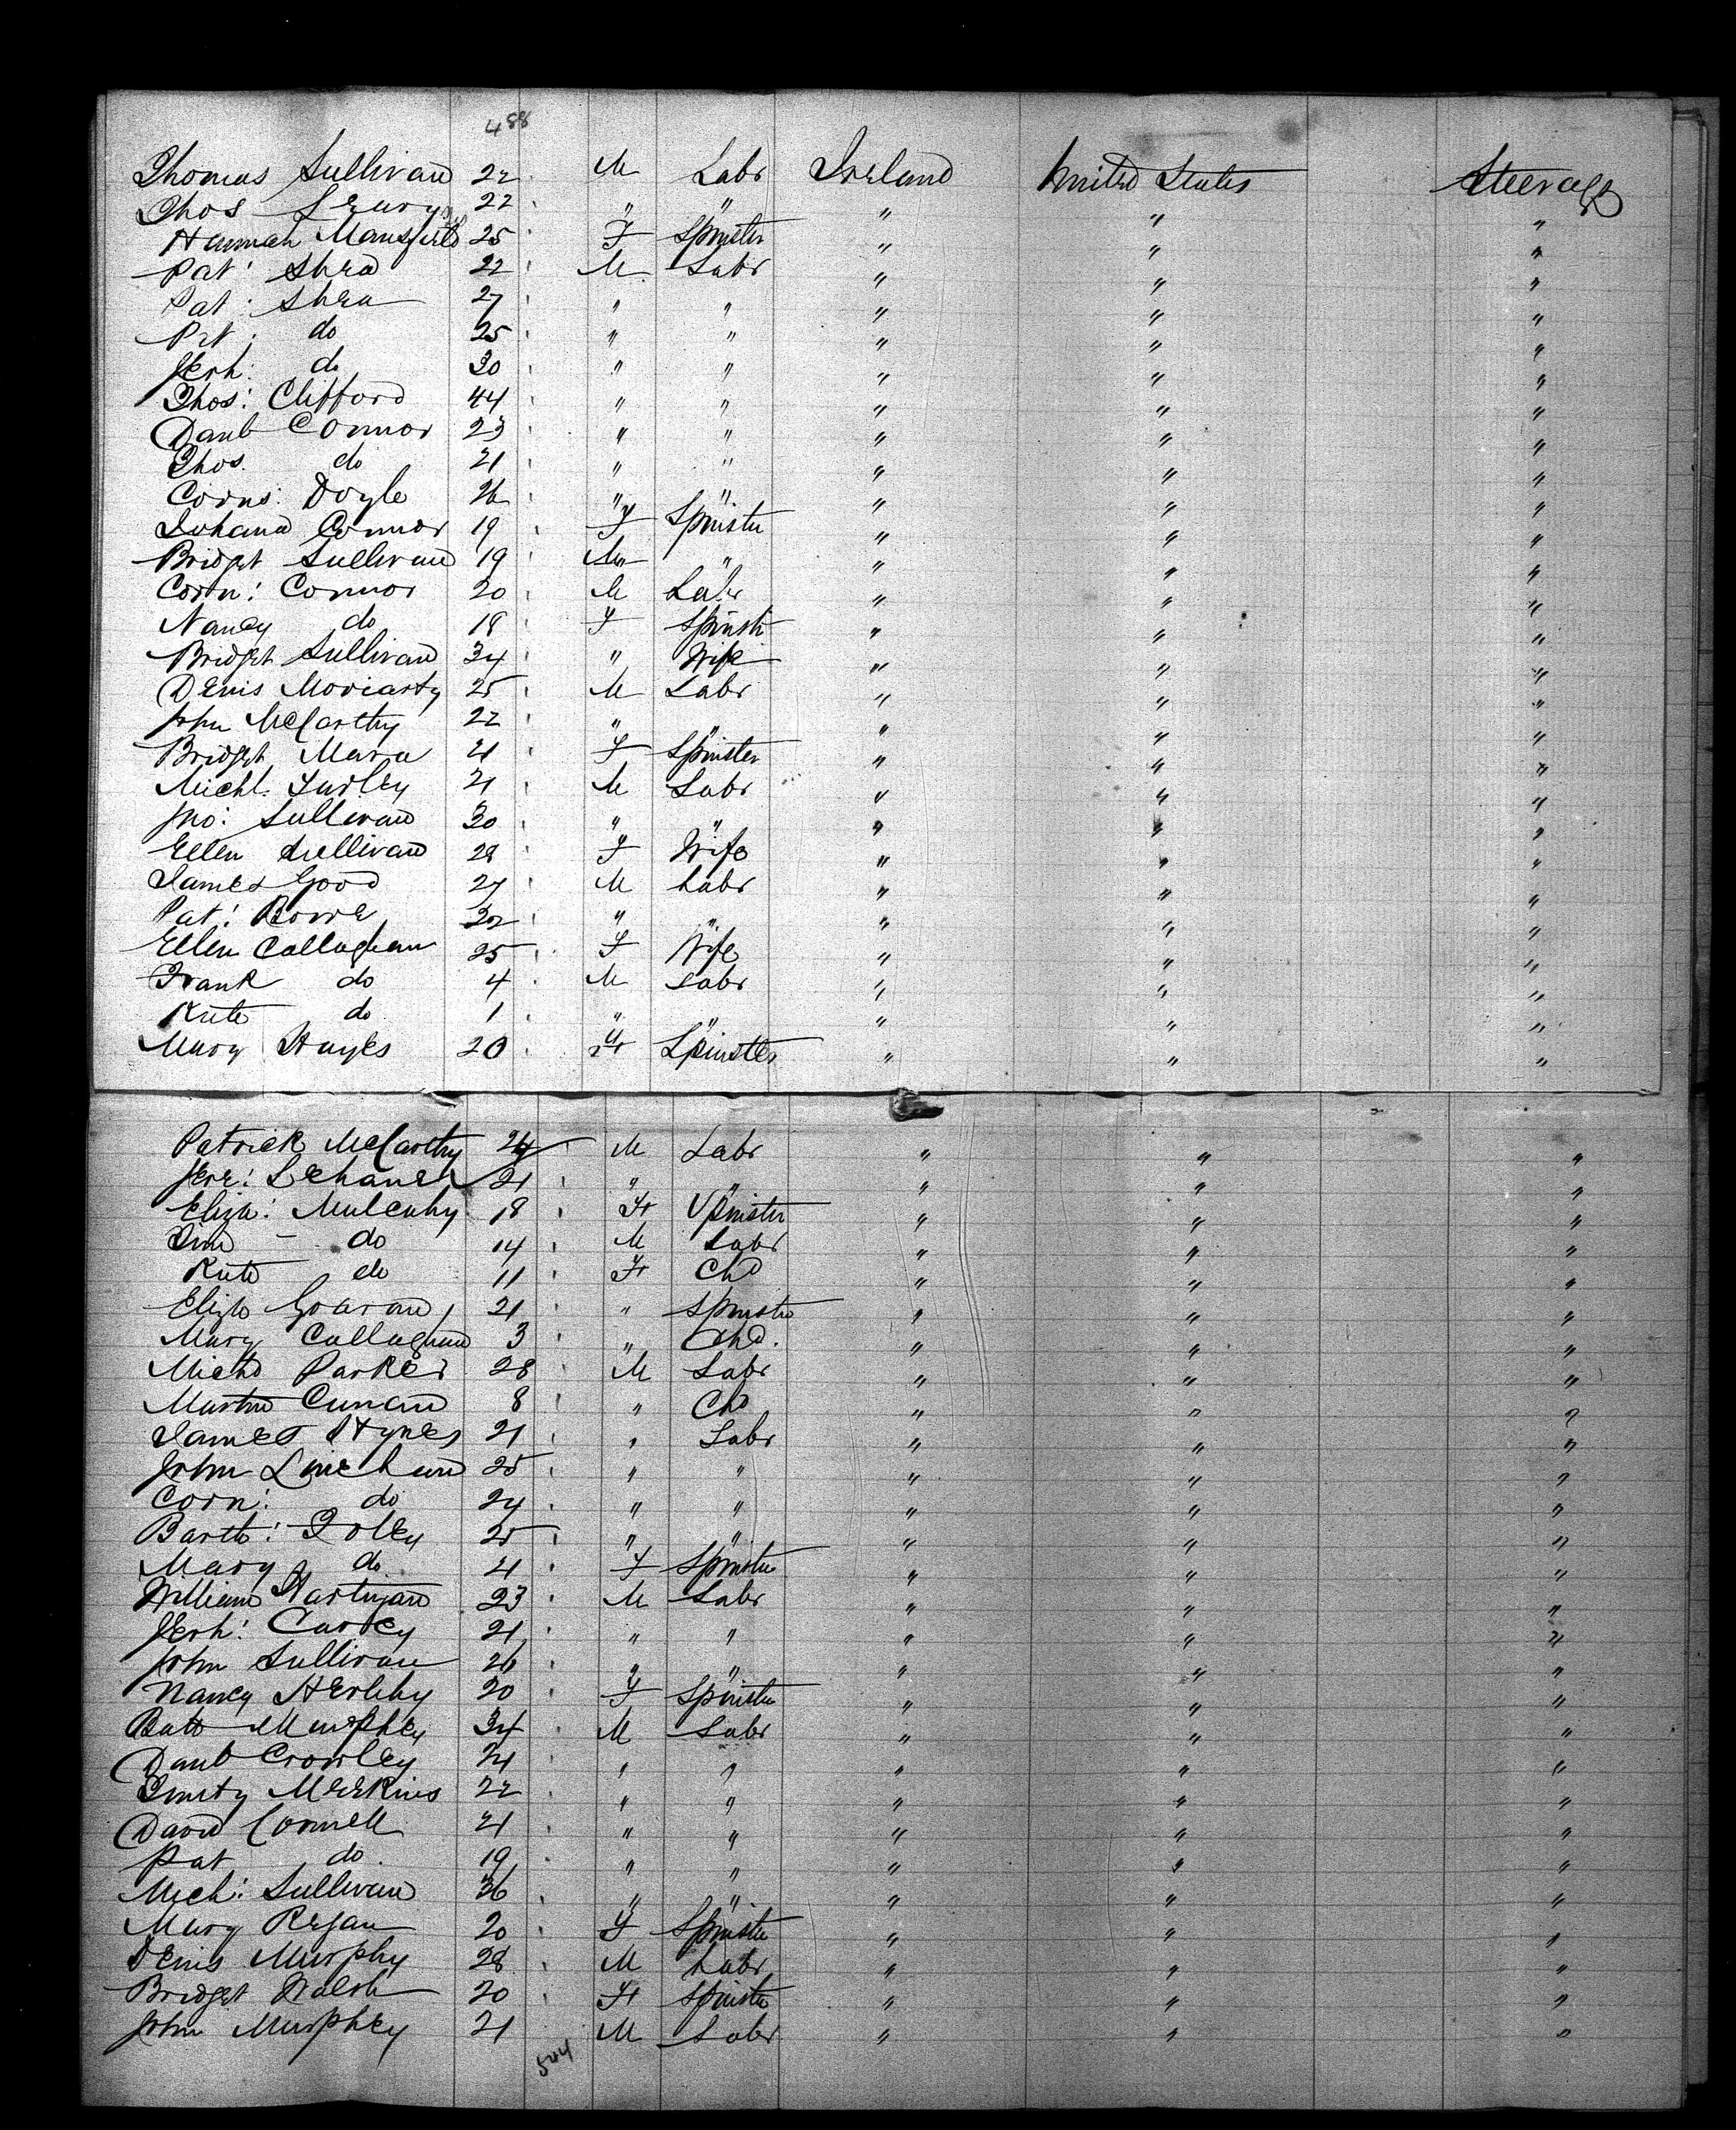 488
Thomas Sullivan 22 M Labr Ireland United States Steerage
Thos Leary 22 " " " " "
Hannah Mansfield 25 F Spinster " " "
Pat: Shea 22 M Labr " " "
Pat: Shea 27 " " " " "
Pat: do 25 " " " " "
Jerh: do 30 " " " " "
Thos: Clifford 44 " " " " "
Danl Connor 23 " " " " "
Thos. do 21 " " " " "
Corns: Doyle 26 " " " " "
Johana Connor 19 F Spinstr " " "
Bridget Sullivan 19 " " " "
Corn: Connor 20 M Labr " " "
Nancy do 18 F Spinstr " " "
Bridget Sullivan 34 " Wife " " "
Denis Moriarty 25 M Labr " " "
John McCarthy 22 " " " " "
Bridget Mara 21 F Spinster " " "
Michl. Turley 21 M Labr " " "
Jno: Sullivan 30 " " " " "
Ellen Sullivan 28 F Wife " " "
James Good 27 M Labr " " "
Pat: 32 " " " " "
Ellen Callaghan 25 F Wife " " "
Frank do 4 M Labr " " "
Kate do 1 " " " " "
Mary Hayes 20 F Spinster " " "
Patrick McCarthy 24 M Labr " " "
Jere: Lehane 21 " " " " "
Eliza: Mulcahy 18 F Spinster " " "
do 14 M Labr " " "
Kate do 11 F Chd " " "
Eliza 21 " Spinstr " " "
Mary Callaghan 3 " Chd. " " "
Michl Parker 28 M Labr " " "
Martin Cunan 8 " Chd " " "
James Hynes 21 " Labr " " "
John Linehan 25 " " " " "
Corn: do 24 " " " " "
Barth: Foley 25 " " " " "
Mary do 21 F Spinstr " " "
William Hartigan 23 M Labr " " "
Jerh: Carey 21 " " " " "
John Sullivan 26 " " " " "
Nancy Herlihy 20 F Spinstr " " "
Batt Murphey 34 M Labr " " "
Danl Crowley 21 " " " " "
22 " " " " "
David Connell 21 " " " " "
Pat do. 19 " " " " "
Mich: Sullivan 36 " " " " "
Mary Regan 20 F Spinstr " " "
Denis Murphy 28 M Labr " " "
Bridget Walsh 20 F Spinstr " " "
John Murphey 21 M Labr " " "
544